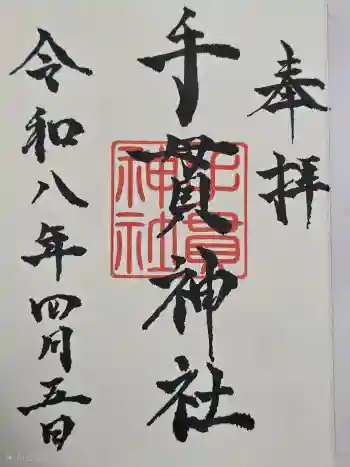 奉拝
手貫神社
手貫神社
令和八年四月五日